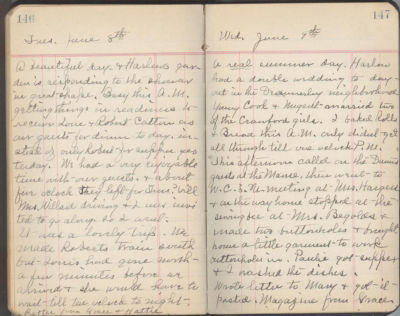 146
Tues. June 8th
A beautiful day. & Harlow's gar-
den is responding to the shower
in great shape. Busy this A.M.
getting things in readiness to
receive Lone & Robert Catton as
our guests for dinner to day, in-
stead of only Robert for supper yes-
terday. We had a very enjoyable
time with our guests, & about
five o'clock they left for
Mrs. Willard driving & I was invi-
ted to go along. So I went.
It was a lovely trip. We
made Robert's train south
but had gone north
a few minutes before we
arrived & she would have to
wait till ten o'clock to night.
Letter from Grace & Hattie
147
Wed. June 9th
A real summer day. Harlow
had a double wedding to day
out in the neighborhood
Young Cook & Nugent married two
of the Crawford girls. I baked Rolls
& Bread this A.M. only didn't get
all through till one o'clock P.M.
This afternoon called on the
guests at the Manse, then went to
W.C.T.U. meeting at Mrs.
& on the way home stopped at the
sewing bee at Mrs. &
made two buttonholes & brought
home a little garment to work
buttonholes in. got supper
& I washed the dishes.
Wrote letter to Mary & got it
posted. Magazine from Grace